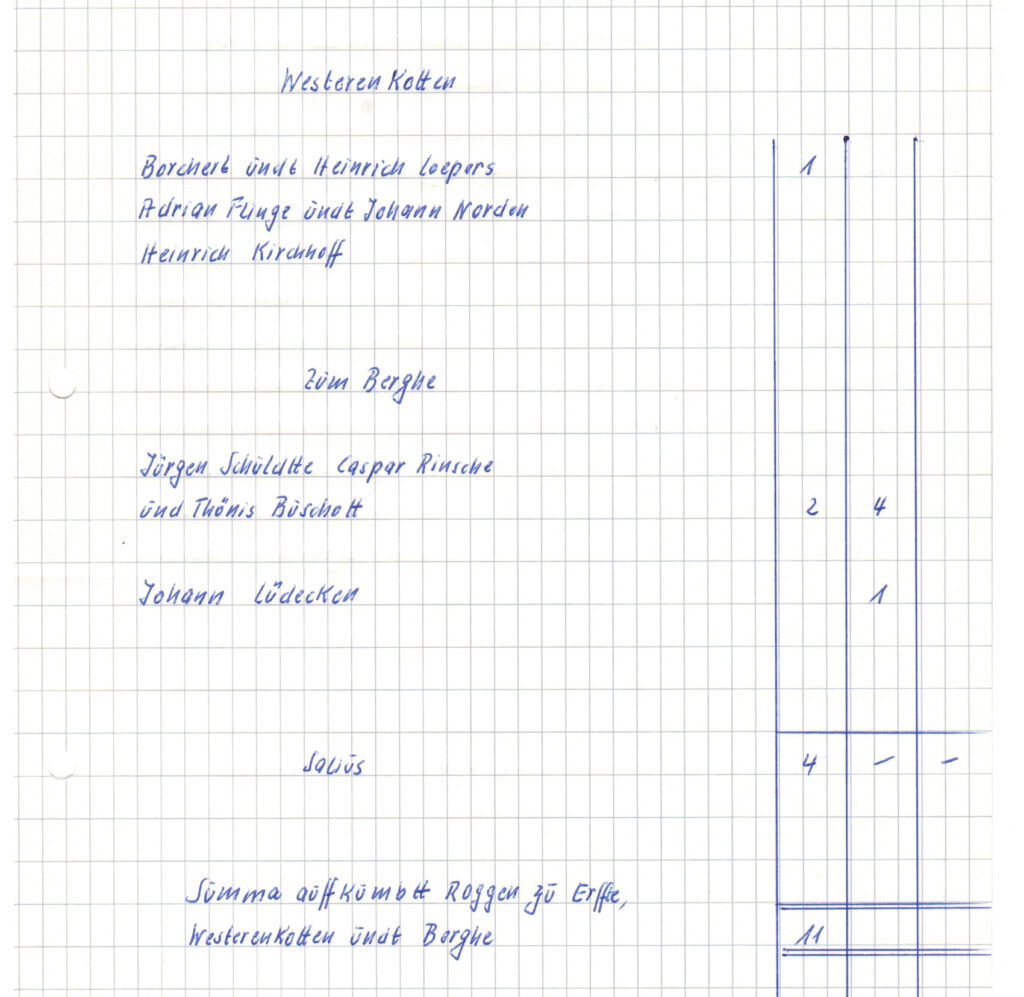 Westeren Kotten
Borchert undt Heinrich Loepers 1
Adrian Flinge undt Johann Norden
Heinrich Kirchhoff
Zum Berghe
Jürgen Schuldtte Caspar Rinsche
und Thönis Buschott 2 4
Johann Lüdecken 1
Salius 4 – –
Summa auffkumbtt Roggen zu Erffte,
Westerenkotten undt Berghe 11